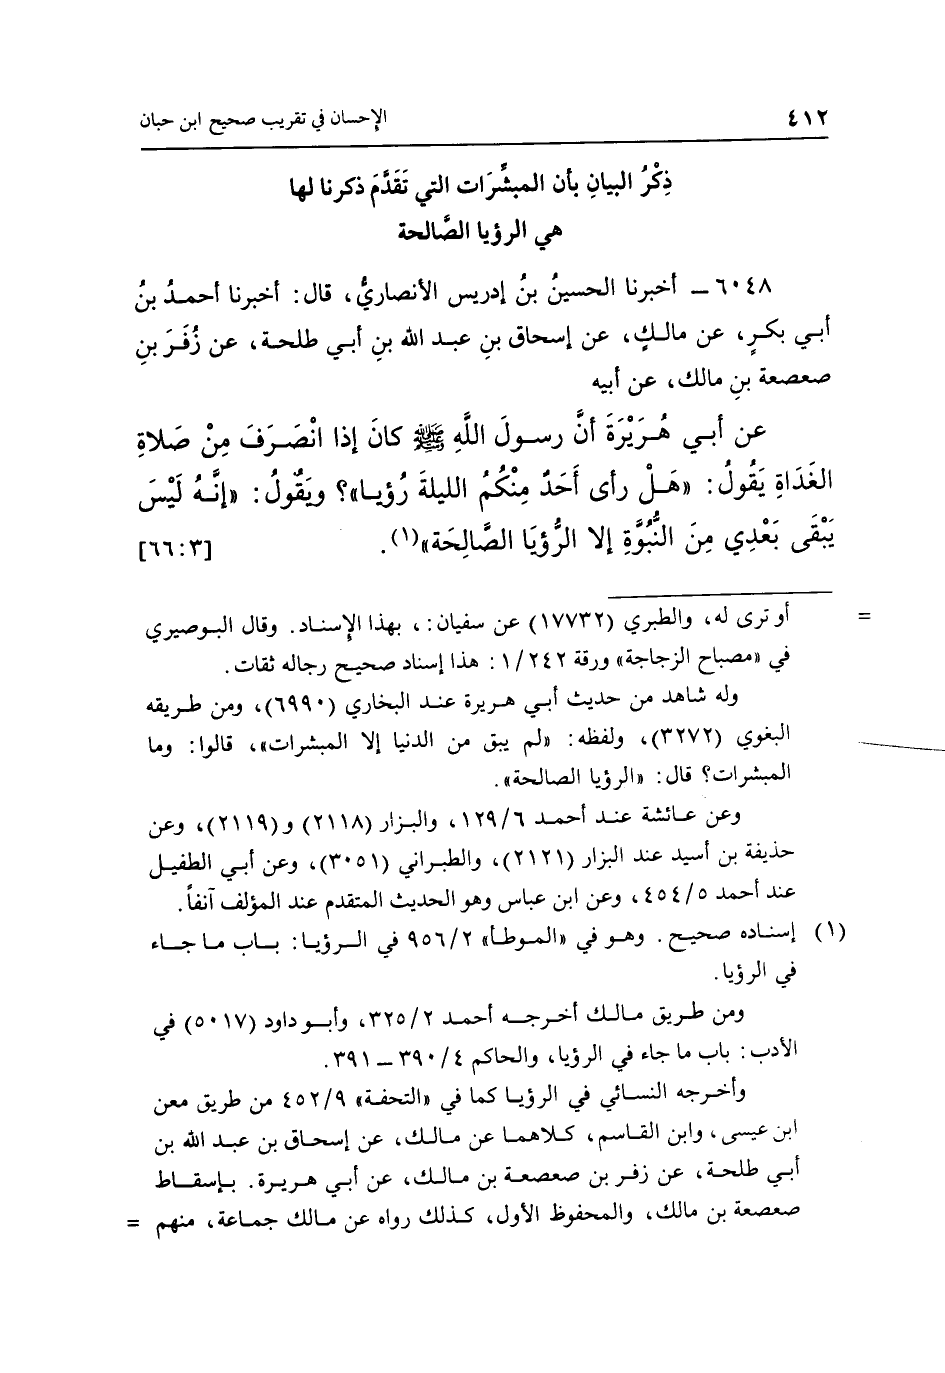 ٤١٢ الإحسان في تقريب صحيح ابن حبان
ذِكْرُ البيانِ بأن المبشِّرَات التي تَقَدَّمَ ذكرنا لها
هي الرؤيا الصَّالحة
٦٠٤٨ ــ أخبرنا الحسينُ بنُ إدريس الأنصاريُّ، قال: أخبرنا أحمـدُ بنُ
أبـي بكـرٍ، عن مالـكٍ، عن إسحاق بنِ عبـد الله بنِ أبي طلحـة، عن زُفَرَ بنِ
صعصعة بنِ مالك، عن أبيه
عن أبـي هُـرَيْرَةَ أنَّ رسـولَ اللَّهِ ﷺ كانَ إذا انْصَـرَفَ مِنْ صَلاةِ
الغَدَاةِ يَقُولُ: «هَـلْ رأى أَحَدٌ مِنْكُمُ الليلةَ رُؤيـا»؟ ويَقُولُ: «إنَّـهُ لَيْسَ
يَبْقَى بَعْدِي مِنَ النُّبُوَّةِ إلا الرُّؤيَا الصَّالِحَة»(١). [٦٦:٣]
= أو ترى له، والطبري (١٧٧٣٢) عن سفيان:، بهذا الإسنـاد. وقال البـوصيري
في «مصباح الزجاجة» ورقة ١/٢٤٢: هذا إسناد صحيح رجاله ثقات.
وله شاهد من حديث أبـي هـريرة عنـد البخاري (٦٩٩٠)، ومن طـريقه
البغوي (٣٢٧٢)، ولفظه: «لم يبق من الدنيا إلا المبشرات»، قالوا: وما
المبشرات؟ قال: «الرؤيا الصالحة».
وعن عـائشة عنـد أحمـد ١٢٩/٦، والبـزار (٢١١٨) و(٢١١٩)، وعن
حذيفة بن أسيد عند البزار (٢١٢١)، والطبراني (٣٠٥١)، وعن أبـي الطفيـل
عنـد أحمد ٤٥٤/٥، وعن ابن عباس وهو الحديث المتقدم عند المؤلف آنفاً.
(١) إسنـاده صحيـح. وهـو في «المـوطـأ» ٩٥٦/٢ في الـرؤيـا: بـاب مـا جـاء
في الرؤيا.
ومن طـريق مـالـك أخـرجـه أحمـد ٣٢٥/٢، وأبـو داود (٥٠١٧) في
الأدب: باب ما جاء في الرؤيا، والحاكم ٣٩٠/٤ ــ ٣٩١.
وأخـرجه النسائي في الرؤيـا كما في «التحفة» ٤٥٢/٩ من طريق معن
ابن عيسى، وابن القـاسم، كـلاهمـا عن مـالـك، عن إسحـاق بن عبـد الله بن
أبي طلحـة، عن زفـر بن صعصعـة بن مـالـك، عن أبـي هـريرة. بـإسقـاط
صعصعة بن مالك، والمحفوظ الأول، كـذلك رواه عن مـالك جمـاعة، منهم =